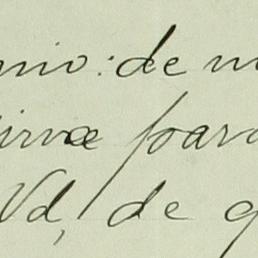 nio: de m
irva para
Vd, de q